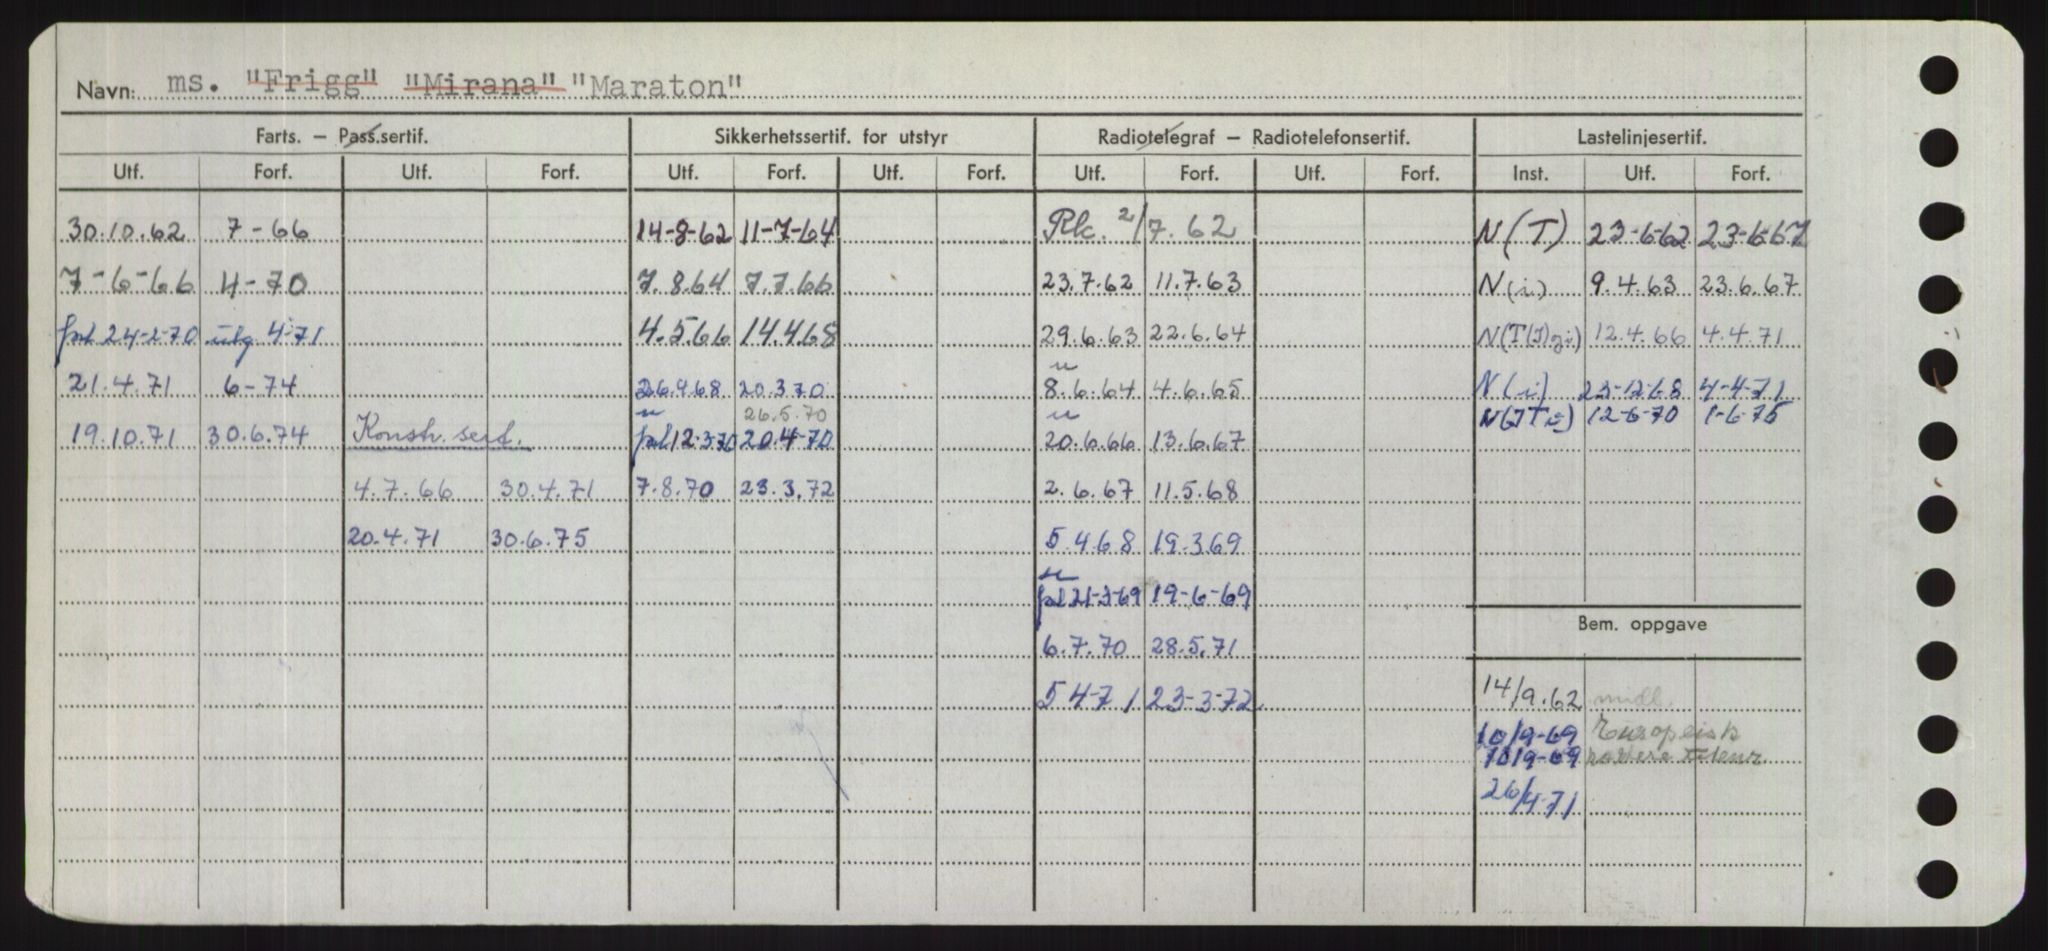 Navn: ms. "Frigg" "Mirana" "Maraton"
Farts. – Pass.sertif. Sikkerhetssertif. for utstyr Radiotelegraf – Radiotelefonsertif. Lastelinjesertif.
Utf. Forf. Utf. Forf. Utf. Forf. Utf. Forf. Utf. Forf. Utf. Forf. Inst. Utf. Forf.
30.10.62 7-66 14-8-62 11-7-64 Rk. 2/7.62 N(T) 23-6-62 23-6-67
7-6-66 4-70 7.8.64 7.7.66 23.7.62 11.7.63 N(i) 9.4.63 23.6.67
fol 24-2-70 utg. 4-71 4.5.66 14.4.68 29.6.63 22.6.64 12.4.66 4.4.71
21.4.71 6-74 26.4.68 20.3.70 8.6.64 4.6.65 N(i) 23-12-68 4-4-71
26.5.70 12-6-70 1-6-75
19.10.71 30.6.74 Konstr. sert. 12-3-70 20.4-70 20.6.66 13.6.67
4.7.66 30.4.71 7.8.70 23.3.72 2.6.67 11.5.68
20.4.71 30.6.75 5.4.68 19.3.69
21-3-69 19-6-69
Bem. oppgave
6.7.70 28.5.71
5 4-71 23-3-72 14/9.62 midl.
10/9-69 Europeisk
10/9-69
26/4-71